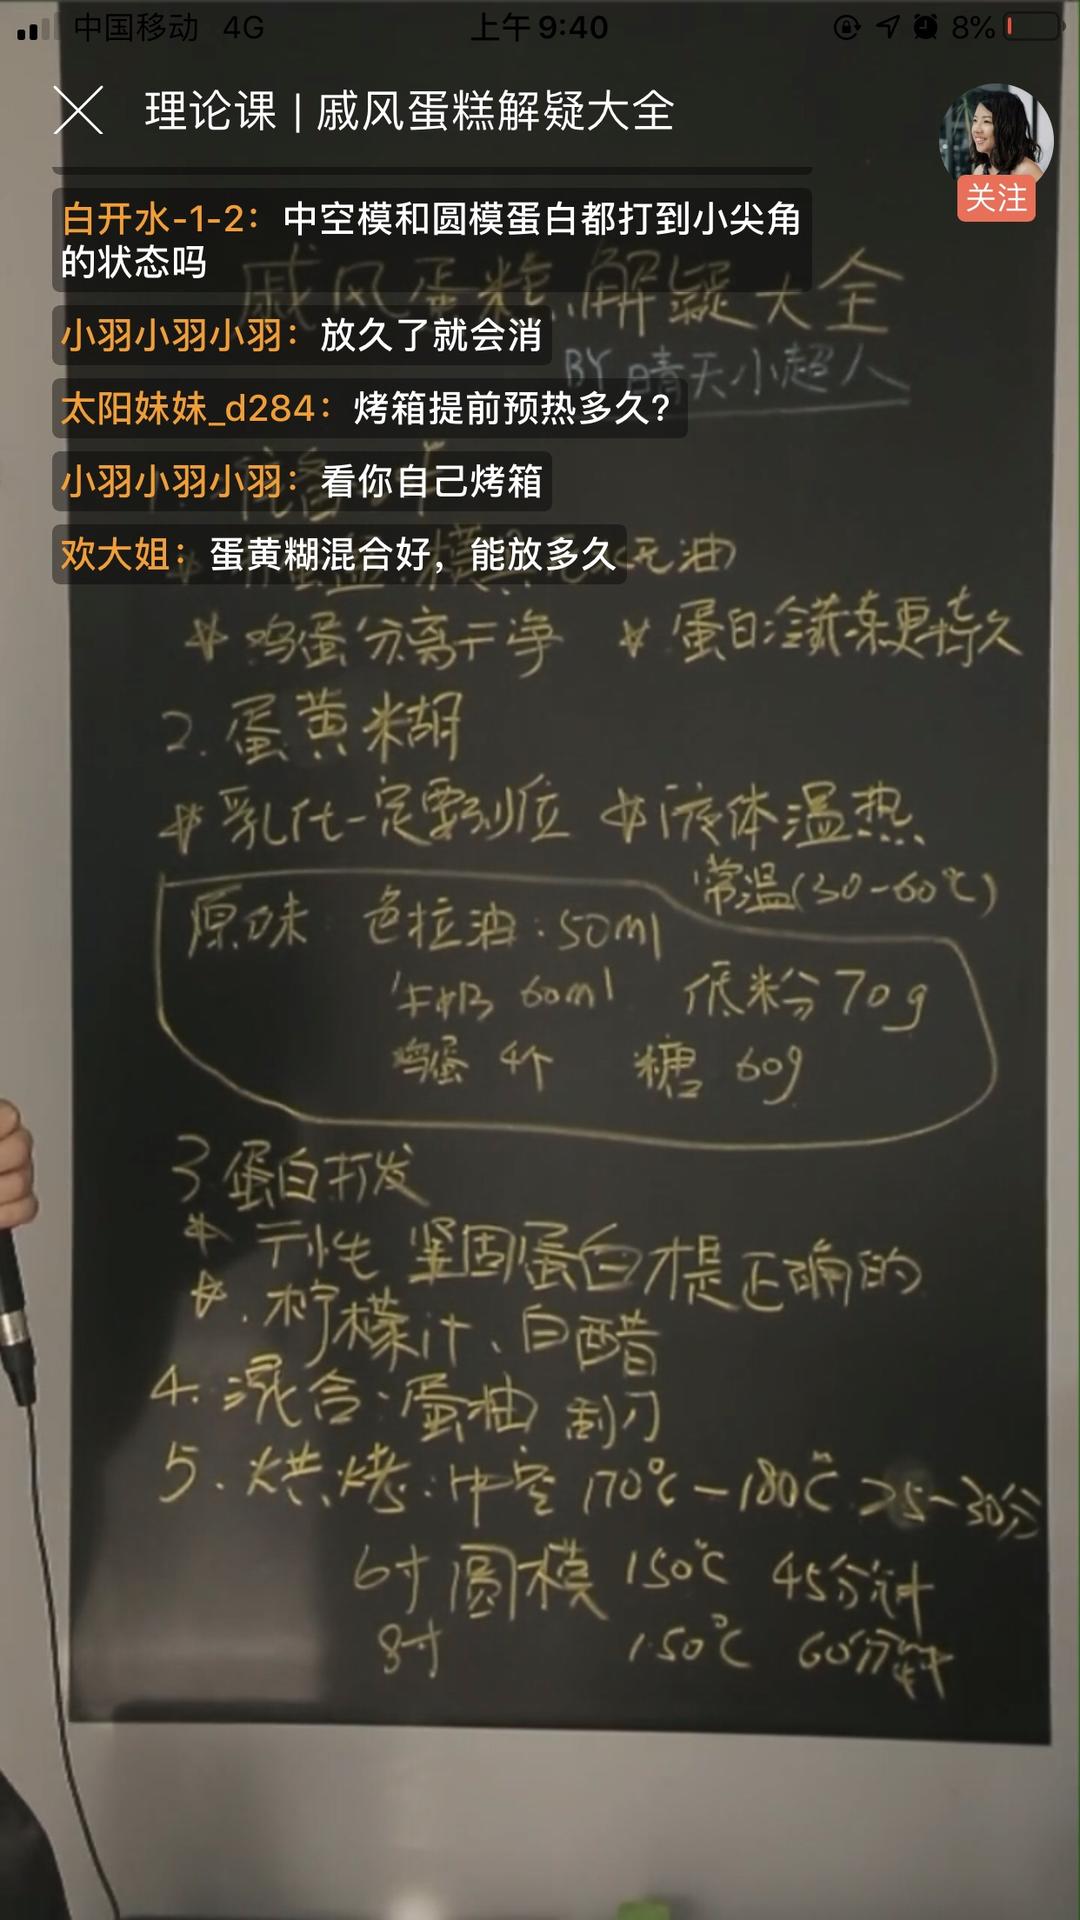 中国移动 4G 上午9:40 8%
理论课 | 戚风蛋糕解疑大全
关注
白开水-1-2：中空模和圆模蛋白都打到小尖角
的状态吗
戚风蛋糕解疑大全
小羽小羽小羽：放久了就会消
BY 晴天小超人
太阳妹妹_d284：烤箱提前预热多久？
小羽小羽小羽：看你自己烤箱
欢大姐：蛋黄糊混合好，能放多久
无油
* 鸡蛋分离干净 * 蛋白冷藏冻更持久
2. 蛋黄糊
* 乳化一定要到位 * 液体温热
常温(30-60℃)
原味 色拉油:50ml
牛奶 60ml 低粉 70g
鸡蛋 4个 糖 60g
3 蛋白打发
* 干性 坚固蛋白才是正确的
* . 柠檬汁、白醋
4. 混合:蛋抽 刮刀
5. 烘烤:中空 170℃-180℃ 25-30分
6寸圆模 150℃ 45分钟
8寸 150℃ 60分钟